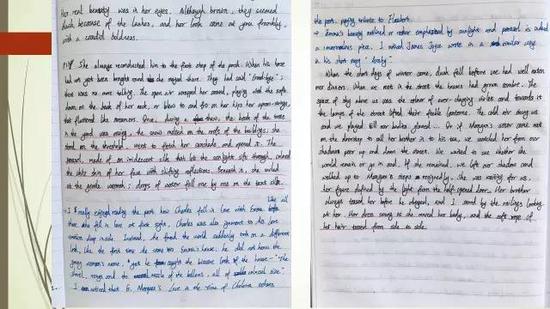 Her real beauty was in her eyes. Although brown, they seemed
black because of the lashes, and her look came at you frankly,
with a candid boldness.
She always reconducted him to the first step of the porch. When his horse
had not yet been brought round she stayed there. They had said "Good-bye";
there was no more talking. The open air wrapped her round, playing with the soft
down on the back of her neck, or blew to and fro on her hips her apron-strings,
that fluttered like streamers. Once, during a thaw, the bark of the trees
in the yard was oozing, the snow melted on the roofs of the buildings; she
stood on the threshold, went to fetch her sunshade and opened it. The
made of an iridescent silk that let the sunlight sift through, colored
the white skin of her face with shifting reflections. Beneath it, she smiled
at the gentle warmth; drops of water fell one by one on the taut silk.
I really enjoyed reading the part how Charles fell in love with Emma
fell in love at first sight, Charles was also ignorant to his love
Instead, he found the world suddenly on a different
look, like the first time he came to Emma's house, he did not know the
young woman's name,
I noticed that G. Marquez's Love in the Time of Cholera
the port, paying tribute to Flaubert.
Emma's beauty outlined or rather emphasized by sunlight and parasol is indeed
a impressionist piece. I noted James Joyce wrote in a similar way
in his short story "Araby"
When the short days of winter came, dusk fell before we had well eaten
our dinners. When we met in the street the houses had grown sombre. The
space of sky above us was the colour of ever-changing violet and towards it
the lamps of the street lifted their feeble lanterns. The cold air stung us
and we played till our bodies glowed. Or if Mangan's sister came out
on the doorstep to call her brother in to his tea, we watched her from our
shadow peer up and down the street. We waited to see whether she
would remain or go in and, if she remained, we left our shadow and
walked up to Mangan's steps resignedly. She was waiting for us,
her figure defined by the light from the half-opened door. Her brother
always teased her before he obeyed, and I stood by the railings looking
at her. Her dress swung as she moved her body, and the soft rope of
her hair tossed from side to side.